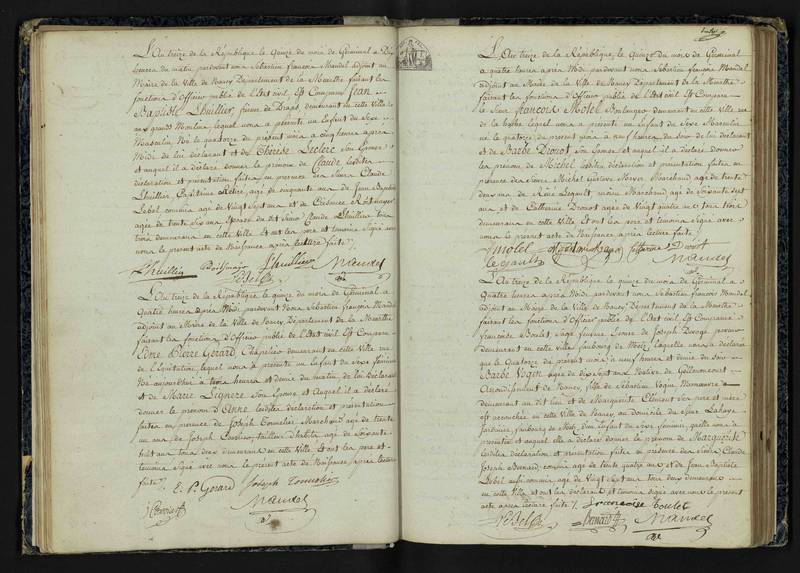 L'An treize de la République, le quinze du mois de Germinal à Dix
heures du matin, pardevant nous Sébastien françois Mandel adjoint au
Maire de la Ville de Nancy Département de la Meurthe faisant les
fonctions d'Officier public de l'état civil Est Comparu Jean
Baptiste Lhuillier, demeurant en cette Ville
lequel nous a présenté un Enfant du Sexe
Masculin Né le quatorze du présent mois à cinq heures après
Midi de lui déclarant et de Thérèse Leclerc Son Epouse
et auquel il a déclaré donner le prénom de Claude lesdites
déclaration et présentation faites en présence des Sieurs Claude
Lhuillier, âgé de cinquante ans de Jean Baptiste
Lebel, commis agé de Vingt Sept ans et de
agée de trente Six ans Epouse du dit Sieur Claude Lhuillier tous
trois demeurans en cette Ville. Et ont les père et témoins Signé avec
nous le présent acte de Naissance après lecture faite %
Lhuillier Lhuillier Mandel
Lebel
L'An treize de la République le quinze du mois de Germinal à
Quatre heures après Midi pardevant Nous Sébastien françois Mandel
adjoint au Maire de la Ville de Nancy Département de la Meurthe
faisant les fonctions d'Officier public de l'état civil Est Comparu
Edme Pierre Gérard, Chapelier demeurant en cette Ville rue
de l'Equitation, lequel nous a présenté un Enfant du Sexe féminin
Né aujourd'hui à trois heures et demie du matin, de lui Déclarant
et de Marie Lignere Son Epouse et Auquel il a déclaré
donner le prénom d'Anne lesdites déclaration et présentation
faites en présence de Joseph Tonnelier Marchand agé de trente
un ans, de Joseph tailleur d'habits agé de Soixante
huit ans tous deux demeurans en cette Ville. Et ont les père et
témoins Signé avec nous le présent acte de Naissance, après lecture
faite %. E. P. Gérard Joseph Tonnelier
Mandel
L'An treize de la République, le quinze du mois de Germinal
à quatre heures après Midi pardevant nous Sébastien François Mandel
adjoint au Maire de la Ville de Nancy Département de la Meurthe
faisant les fonctions d'Officier public de l'état civil Est Comparu
le Sieur françois Motel Boulanger demeurant en cette Ville rue
lequel nous a présenté un Enfant du Sexe Masculin
né le quatorze du présent mois à neuf heures, du soir de lui déclarant
et de Barbe Drouot Son Epouse et auquel il a déclaré donner
les prénom de Michel lesdites déclaration et présentation faites en
présence des Sieurs Michel Gustave Marchand agé de trente
deux ans de Réné Legault ancien Marchand agé de Soixante Sept
ans et de Catherine Drouot agée de Vingt quatre ans tous trois
demeurans en cette Ville Et ont les père et témoins Signé avec
nous le présent acte de Naissance après lecture faite %
Motel Catherine Drouot
legault Mandel
L'An treize de la République le quinze du mois de Germinal à
Quatre heures après Midi pardevant Nous Sébastien François Mandel
adjoint au Maire de la Ville de Nancy, Département de la Meurthe
faisant les fonctions d'Officier public de l'état civil Est Comparue
françoise Boulet Sage femme Epouse de Joseph
demeurant en cette Ville, faubourg de Metz, laquelle nous a déclaré
que le Quatorze du présent mois à neuf heures et demie du soir
Barbe Vogin agée de dix Sept ans Native de
Arrondissement de Nancy, fille de Sébastien Vogin, Manœuvre
demeurant au dit lieu et de Marguerite Clément Ses père et mère
est accouchée en cette Ville de Nancy, au domicile du Sieur
Jardinier, faubourg de Metz, d'un Enfant du Sexe féminin, quelle nous a
présenté et auquel elle a déclaré donner le prénom de Marguerite
lesdites déclaration et présentation faites en présence des Sieurs Claude
Joseph Bernard, commis agé de trente quatre ans et de Jean Baptiste
Lebel aussi commis agé de Vingt Sept ans tous deux demeurans
en cette Ville et ont les déclarante et témoins Signé avec nous le présent
acte après lecture faite %. françoise Boulet
Lebel Bernard Mandel